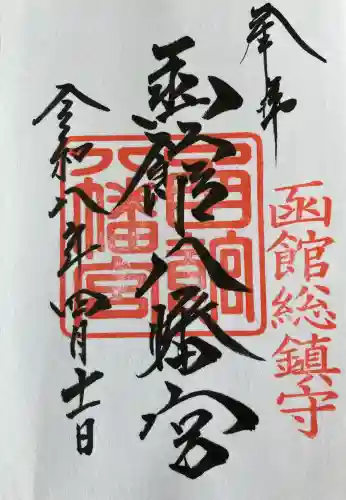 奉拝
函館総鎮守
函館八幡宮
函館八幡宮
令和八年四月十一日